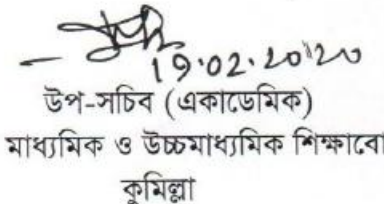 19.02.2020
উপ-সচিব (একাডেমিক)
মাধ্যমিক ও উচ্চমাধ্যমিক শিক্ষাবো
কুমিল্লা